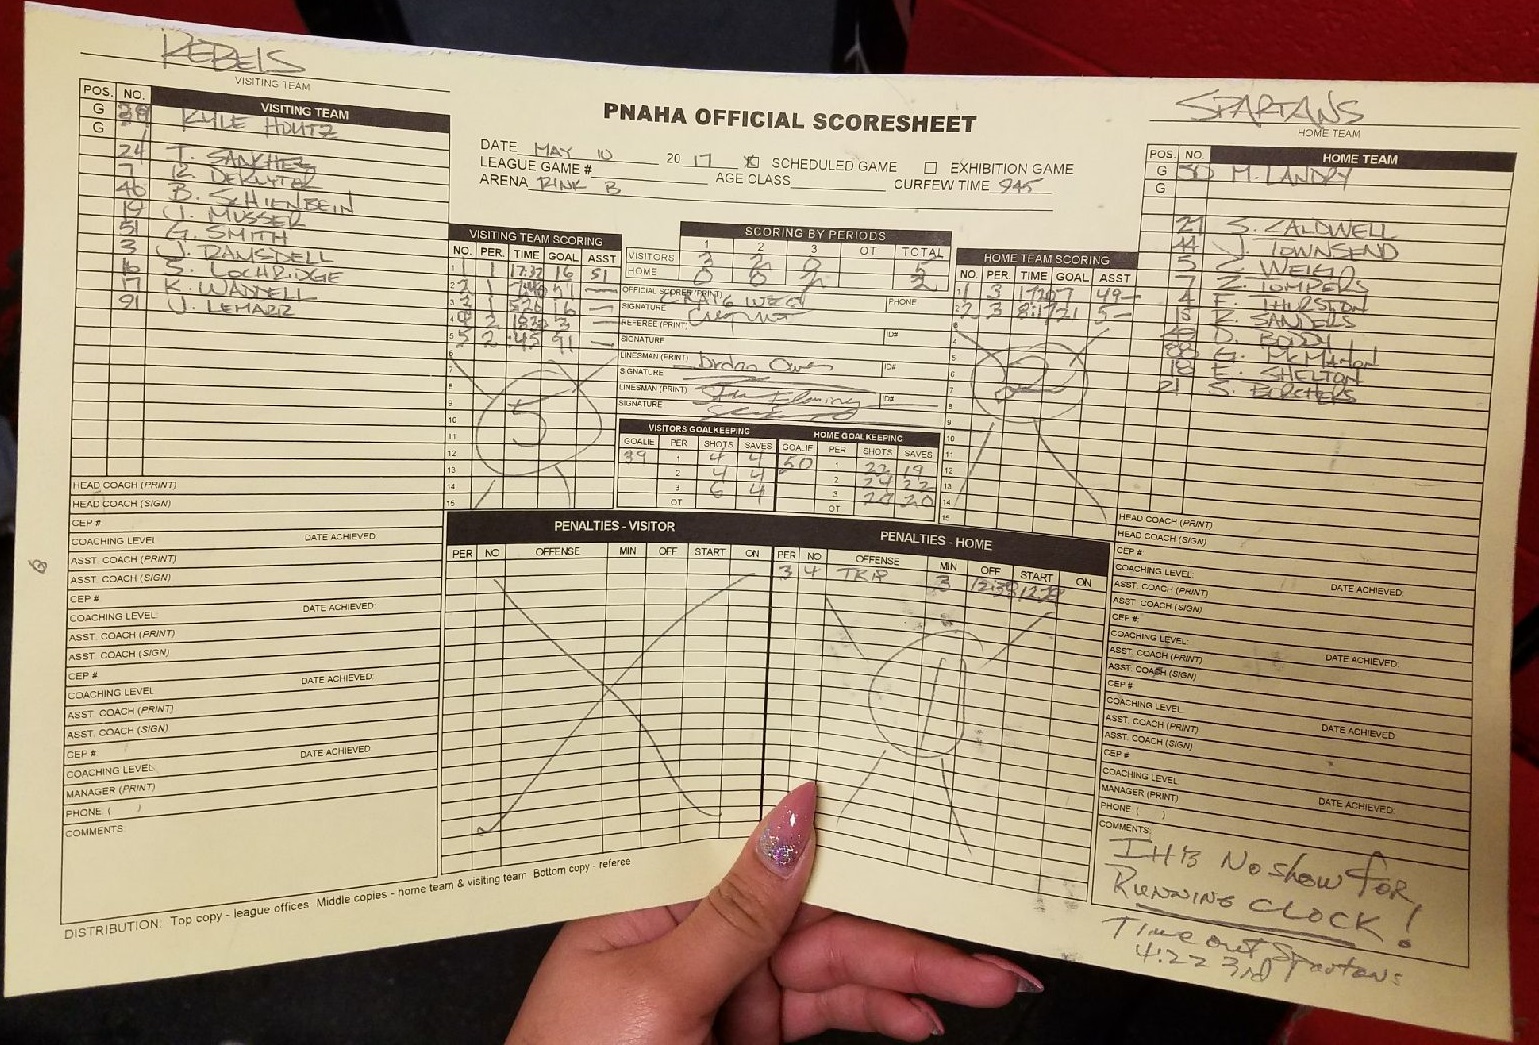 REBELS
VISITING TEAM
POS. NO. VISITING TEAM
G 39 KYLE HOUTZ
G
24 T. SANCHEZ
7
40 B. SCHIENBEIN
19 J. MUSSER
51 G. SMITH
3 J. RAMSDELL
16 S. LOCHRIDGE
17 K. WANDELL
91 J. LEMARR
HEAD COACH (PRINT)
HEAD COACH (SIGN)
CEP #
COACHING LEVEL DATE ACHIEVED:
ASST. COACH (PRINT)
ASST. COACH (SIGN)
CEP #
COACHING LEVEL: DATE ACHIEVED:
ASST. COACH (PRINT)
ASST. COACH (SIGN)
CEP #
COACHING LEVEL DATE ACHIEVED:
ASST. COACH (PRINT)
ASST. COACH (SIGN)
CEP #
COACHING LEVEL: DATE ACHIEVED:
MANAGER (PRINT)
PHONE ( )
COMMENTS:
PNAHA OFFICIAL SCORESHEET
DATE MAY 10 20 17 SCHEDULED GAME EXHIBITION GAME
LEAGUE GAME #
ARENA RINK B AGE CLASS CURFEW TIME 945
VISITING TEAM SCORING
NO. PER. TIME GOAL ASST
1 1 17:32 16 51
2 1
3 1 16
4 2 3
5 2 :45 91
6
7
8
9
10
11
12
13
14
15
5
SCORING BY PERIODS
1 2 3 OT TOTAL
VISITORS 3 2 0 5
HOME 0 0 2 2
OFFICIAL SCORER (PRINT) CRAIG WEST PHONE
SIGNATURE
REFEREE (PRINT) ID#
SIGNATURE
LINESMAN (PRINT) ID#
SIGNATURE
LINESMAN (PRINT) ID#
SIGNATURE
VISITORS GOALKEEPING HOME GOALKEEPING
GOALIE PER SHOTS SAVES GOALIE PER SHOTS SAVES
39 1 4 4 50 1 22 19
2 4 4 2 24 22
3 6 4 3 20 20
OT OT
HOME TEAM SCORING
NO. PER. TIME GOAL ASST
1 3 7
2 3 8:17 21 5
4
5
6
7
8
9
10
11
12
13
14
15
2
PENALTIES - VISITOR
PER NO OFFENSE MIN OFF START ON
PENALTIES - HOME
PER NO OFFENSE MIN OFF START ON
3 4 TRIP 3 12:38
1
SPARTANS
HOME TEAM
POS. NO. HOME TEAM
G 50 M. LANDRY
G
27 S. CALDWELL
44 J. TOWNSEND
5 Z. WEIGO
7 Z. TOMPERS
4 F. THURSTON
15 R. SANDERS
49 D. RODDY
88 G. McMAHON
18 E. SHELTON
21 S. BORCHERS
HEAD COACH (PRINT)
HEAD COACH (SIGN)
CEP #
COACHING LEVEL: DATE ACHIEVED:
ASST. COACH (PRINT)
ASST. COACH (SIGN)
CEP #:
COACHING LEVEL: DATE ACHIEVED:
ASST. COACH (PRINT)
ASST. COACH (SIGN)
CEP #:
COACHING LEVEL: DATE ACHIEVED:
ASST. COACH (PRINT)
ASST. COACH (SIGN)
CEP #:
COACHING LEVEL DATE ACHIEVED:
MANAGER (PRINT)
PHONE ( )
COMMENTS:
IHB NO SHOW FOR
RUNNING CLOCK!
Time out Spartans
4:22 3rd
DISTRIBUTION: Top copy - league offices Middle copies - home team & visiting team Bottom copy - referee